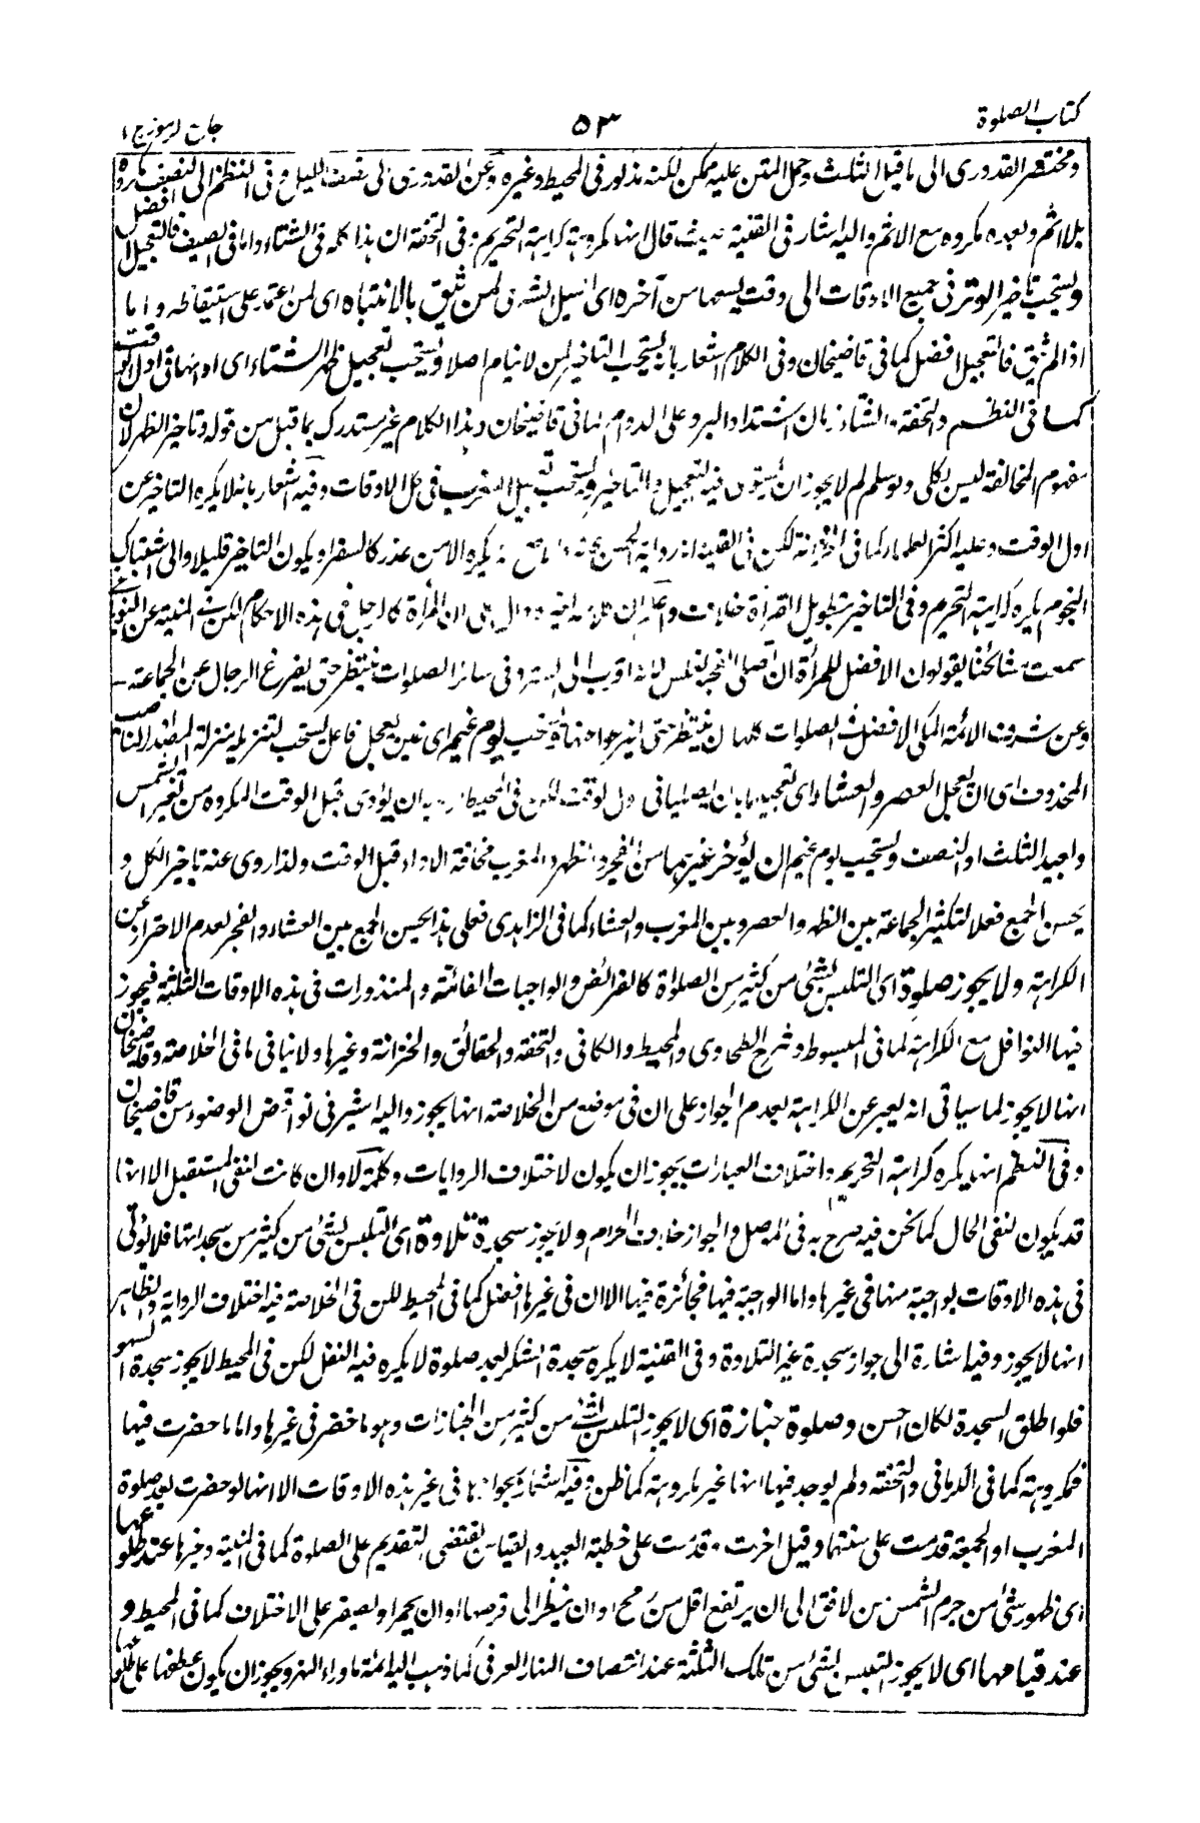 كتاب الصلوة
٥٣
جامع الرموز ج ١
ومختصر القدورى الى ما قبل الثلث وحمل المتن عليه ممكن لكنه مذكور فى المحيط وغيره وعن القدورى الى نصف الليل وفى النظم الى النصف مكروه
بلا اثم وبعده مكروه مع الاثم واليه اشار فى القنية حيث قال انها مكروهة كراهة التحريم وفى التحفة ان هذا كله فى الشتاء واما فى الصيف فالتعجيل افضل
ويستحب تاخير الوتر فى جميع الاوقات الى وقت يسعها من آخره اى الليل الشرعى لمن يثق بالانتباه اى لمن اعتمد على استيقاظه واما
اذا لم يثق فالتعجيل افضل كما فى قاضيخان وفى الكلام اشعار بانه يستحب التاخير لمن لا ينام اصلا ويستحب تعجيل ظهر الشتاء اى اداؤها فى اول الوقت
كما فى النظم والتحفة والشتاء زمان اشتداد البرد على الدوام كما فى قاضيخان وهذا الكلام غير مستدرك بما قبل من قوله وتاخير الظهر لان
مفهوم المخالفة ليس بكلى ولو سلم لم لا يجوز ان يستوى فيه التعجيل والتاخير ويستحب تعجيل المغرب فى كل الاوقات وفيه اشعار بانه لا يكره التاخير عن
اول الوقت وعليه اكثر العلماء كما فى الخزانة لكن فى القنية انه رواية الحسن عنه والاصح انه يكره الا من عذر كالسفر او يكون التاخير قليلا والى اشتباك
النجوم يكره كراهة التحريم وفى التاخير بتطويل القراءة خلاف واعلم ان كلامه فيه دال على ان المرأة كالرجل فى هذه الاحكام لكن فى المنية عن
سمعت مشائخنا يقولون الافضل للمرأة ان تصلى الفجر بغلس لانه اقرب الى الستر وفى سائر الصلوات تنتظر حتى يفرغ الرجال عن الجماعة
وعن شرف الائمة المكى الافضل فى الصلوات كلها ان تنتظر حتى يفرغوا منها ويستحب يوم غيم اى غين يعجل فاعل يستحب لتنزيله منزلة المصدر الناصب
المحذوف اى ان يعجل العصر والعشاء اى تعجيلهما بان يصليا فى اول الوقت لكن فى المحيط ان يؤدى قبل الوقت المكروه من تغير الشمس
وبعيد الثلث او النصف ويستحب يوم غيم ان يؤخر غيرهما من الفجر والظهر والمغرب مخافة الاداء قبل الوقت ولذا روى عنه تاخير الكل و
يحسن الجمع فعلا لتكثير الجماعة بين الظهر والعصر وبين المغرب والعشاء كما فى الزاهدى فعلى هذا يحسن الجمع بين العشاء والفجر لعدم الاحتراز عن
الكراهة ولا يجوز صلوة اى التلبس بشئ من كثير من الصلوة كالفرائض والواجبات الفائتة والمنذورات فى هذه الاوقات الثلثة فيجوز
فيها النوافل مع الكراهة لما فى المبسوط وشرح الطحاوى والمحيط والكافى والتحفة والحقائق والخزانة وغيرها ولا ينافى ما فى الخلاصة وقاضيخان
انها لا يجوز لما سياتى انه يعبر عن الكراهة بعدم الجواز على ان فى موضع من الخلاصة انها يجوز واليه اشير فى نواقض الوضوء من قاضيخان
وفى النظم انه يكره كراهة التحريم واختلاف العبارات يجوز ان يكون لاختلاف الروايات وكلمة لا وان كانت لنفى المستقبل الا انها
قد يكون لنفى الحال كما نحن فيه صرح به فى المفصل والجواز خلاف الحرام ولا يجوز سجدة تلاوة اى التلبس بشئ من كثير من سجداتها فلا يؤتى
فى هذه الاوقات بواجبة منها فى غيرها واما الواجبة فيها فجائزة فيها الا ان فى غيرها افضل كما فى المحيط لكن فى الخلاصة فيه اختلاف الرواية والظاهر
انها لا يجوز وفيه اشارة الى جواز سجدة غير التلاوة وفى القنية لا يكره سجدة الشكر بعد صلوة لا يكره فيه النفل لكن فى المحيط لا يجوز سجدة السهو
فلو اطلق السجدة لكان احسن وصلوة جنازة اى لا يجوز التلبس بشئ من كثير من الجنازات وهو ما حضر فى غيرها واما ما حضرت فيها
فمكروهة كما فى الكرمانى والتحفة ولم يوجد فيها انها غير مكروهة كما ظن وفيه اشعار بجوازها فى غير هذه الاوقات الا انها لو حضرت بعد صلوة
المغرب او الجمعة قدمت على سنتها وقيل اخرت وقدمت على خطبة العيد والقياس يقتضى التقديم على الصلوة كما فى المنية وغيرها عند طلوعها
اى ظهور شئ من جرم الشمس من الافق الى ان يرتفع اقل من رمح او ان ينظر الى قرصها او ان يحمر او يصفر على الاختلاف كما فى المحيط و
عند قيامها اى لا يجوز التلبس بشئ من تلك الثلثة عند انتصاف النهار العرفى كما ذهب اليه ائمة ما وراء النهر ويجوز ان يكون عطفا على